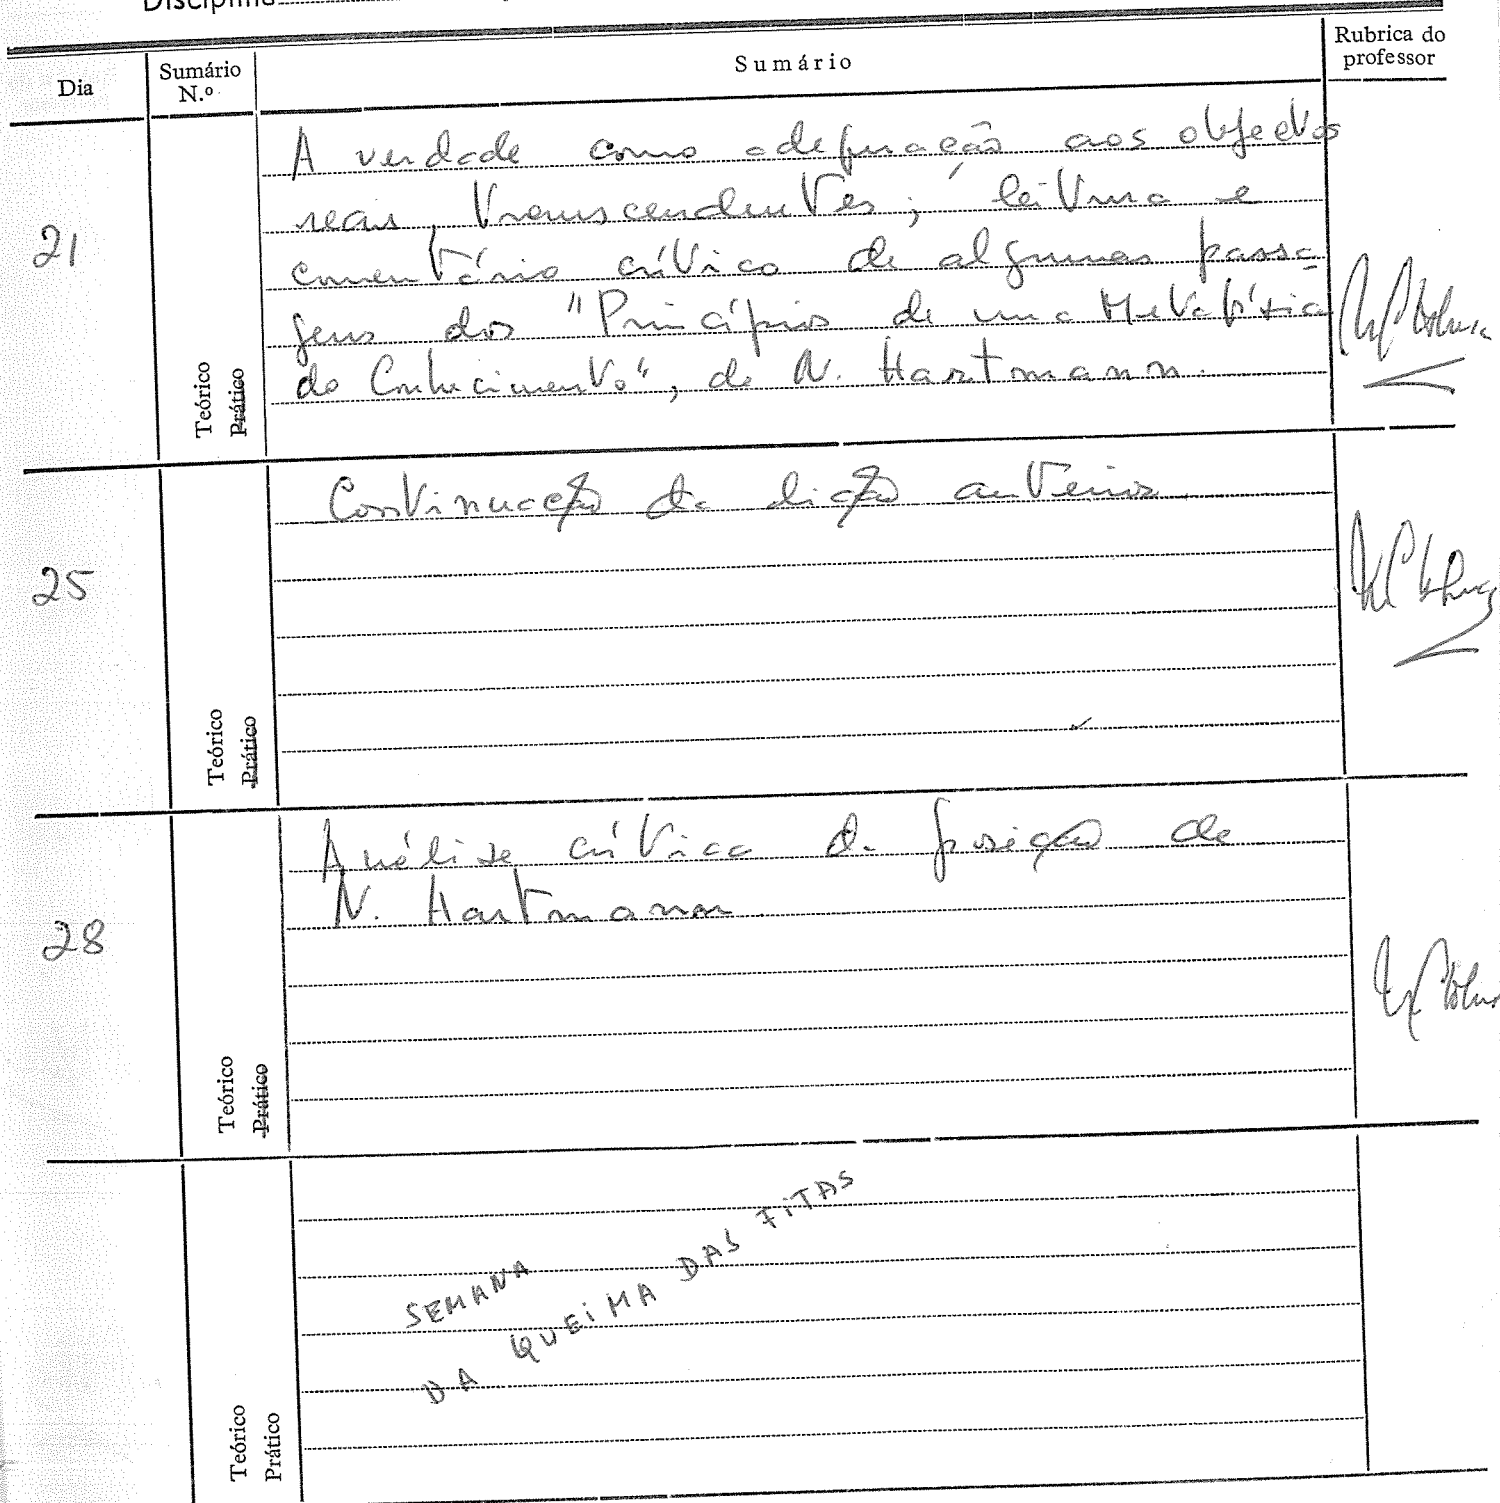 Disciplina
Dia
Sumário N.º
Sumário
Rubrica do professor
21
Teórico
Prático
A verdade como adequação aos objectos
reais, transcendentes; leitura e
comentário crítico de algumas passa
gens dos "Princípios de uma Metafísica
do Conhecimento", de N. Hartmann.
25
Teórico
Prático
Continuação da lição anterior
28
Teórico
Prático
Análise crítica da posição de
N. Hartmann
Teórico
Prático
SEMANA
DA QUEIMA DAS FITAS